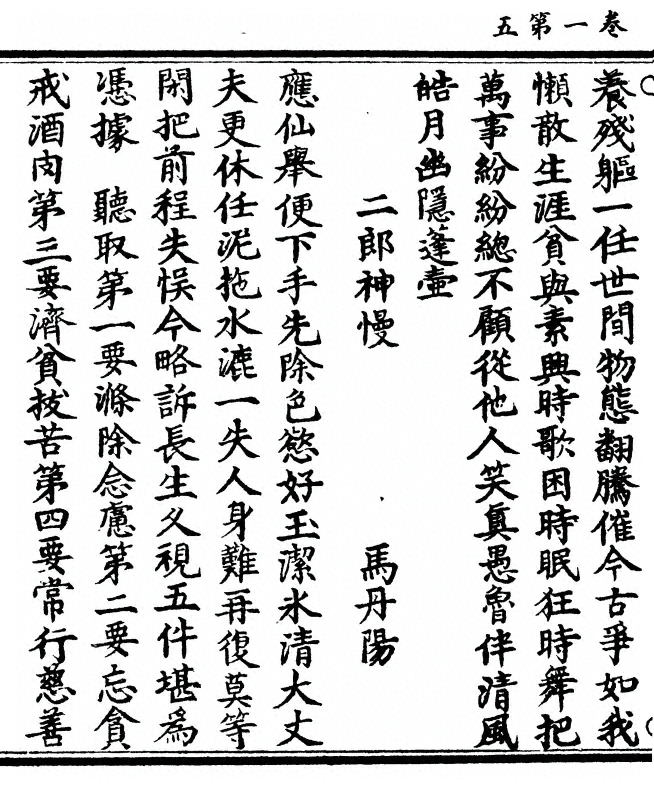 卷一第五
養殘軀一任世間物態翻騰催今古爭如我
懶散生涯貧與素興時歌困時眠狂時舞把
萬事紛紛總不顧從他人笑真愚魯伴清風
皓月幽隱蓬壺
二郎神慢　馬丹陽
應仙舉便下手先除色慾好玉潔氷清大丈
夫更休任泥拖水漉一失人身難再復莫等
閑把前程失悞今略訴長生久視五件堪為
憑據　聽取第一要滌除念慮第二要忘貪
戒酒肉第三要濟貧拔苦第四要常行慈善